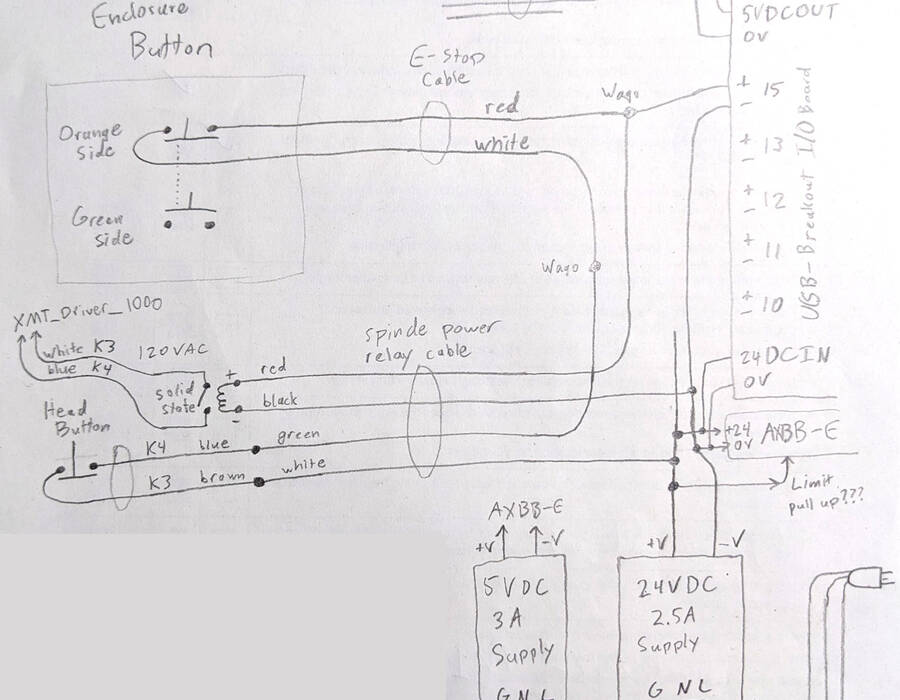 Enclosure
Button
E-Stop
Cable
Orange
side
Green
side
red
white
Wago
Wago
5VDCOUT
0V
+ 15
-
+ 13
-
+ 12
-
+ 11
-
+ 10
-
USB-Breakout I/O Board
24DCIN
0V
+24
0V
AXBB-E
Limit
pull up???
XMT_Driver_1000
white K3
blue K4
120VAC
solid
state
+
-
red
black
spinde power
relay cable
Head
Button
K4 blue
green
K3 brown
white
AXBB-E
+V
-V
5VDC
3A
Supply
G N L
+V
-V
24VDC
2.5A
Supply
G N L